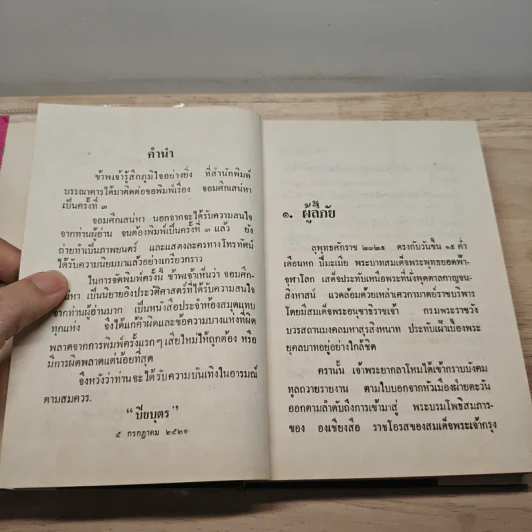 คำนำ
ข้าพเจ้ารู้สึกภูมิใจอย่างยิ่ง ที่สำนักพิมพ์
บรรณาคารได้มาติดต่อขอพิมพ์เรื่อง จอมศึกเสน่หา
เป็นครั้งที่ ๓
จอมศึกเสน่หา นอกจากจะได้รับความสนใจ
จากท่านผู้อ่าน จนต้องพิมพ์เป็นครั้งที่ ๓ แล้ว ยัง
ถ่ายทำเป็นภาพยนตร์ และแสดงละครทางโทรทัศน์
ได้รับความนิยมมาแล้วอย่างเกรียวกราว
ในการจัดพิมพ์ครั้งนี้ ข้าพเจ้าเห็นว่า จอมศึก-
เสน่หา เป็นนิยายอิงประวัติศาสตร์ที่ได้รับความสนใจ
จากท่านผู้อ่านมาก เป็นหนังสือประจำห้องสมุดแทบ
ทุกแห่ง จึงได้แก้คำผิดและข้อความบางแห่งที่ผิด
พลาดจากการพิมพ์ครั้งแรกๆ เสียใหม่ให้ถูกต้อง หรือ
มีการผิดพลาดแต่น้อยที่สุด
จึงหวังว่าท่านจะได้รับความบันเทิงในอารมณ์
ตามสมควร.
“ปิยบุตร”
๕ กรกฎาคม ๒๕๒๑
๑. ผู้ลี้ภัย
ลุพุทธศักราช ๒๓๒๕ ตรงกับวันขึ้น ๑๕ ค่ำ
เดือนหก ปีมะเมีย พระบาทสมเด็จพระพุทธยอดฟ้า-
จุฬาโลก เสด็จประทับเหนือพระที่นั่งพุดตาลกาญจน-
สิงหาสน์ แวดล้อมด้วยเหล่าเศวกามาตย์ราชบริพาร
โดยมีสมเด็จพระอนุชาธิราชเจ้า กรมพระราชวัง
บวรสถานมงคลมหาสุรสิงหนาท ประทับเฝ้าเบื้องพระ
ยุคลบาทอยู่อย่างใกล้ชิด
ครานั้น เจ้าพระยากลาโหมได้เข้ากราบบังคม
ทูลถวายรายงาน ตามใบบอกจากหัวเมืองฝ่ายตะวัน
ออกตามลำดับถึงการเข้ามาสู่ พระบรมโพธิสมภาร-
ของ องเชียงสือ ราชโอรสของสมเด็จพระเจ้ากรุง